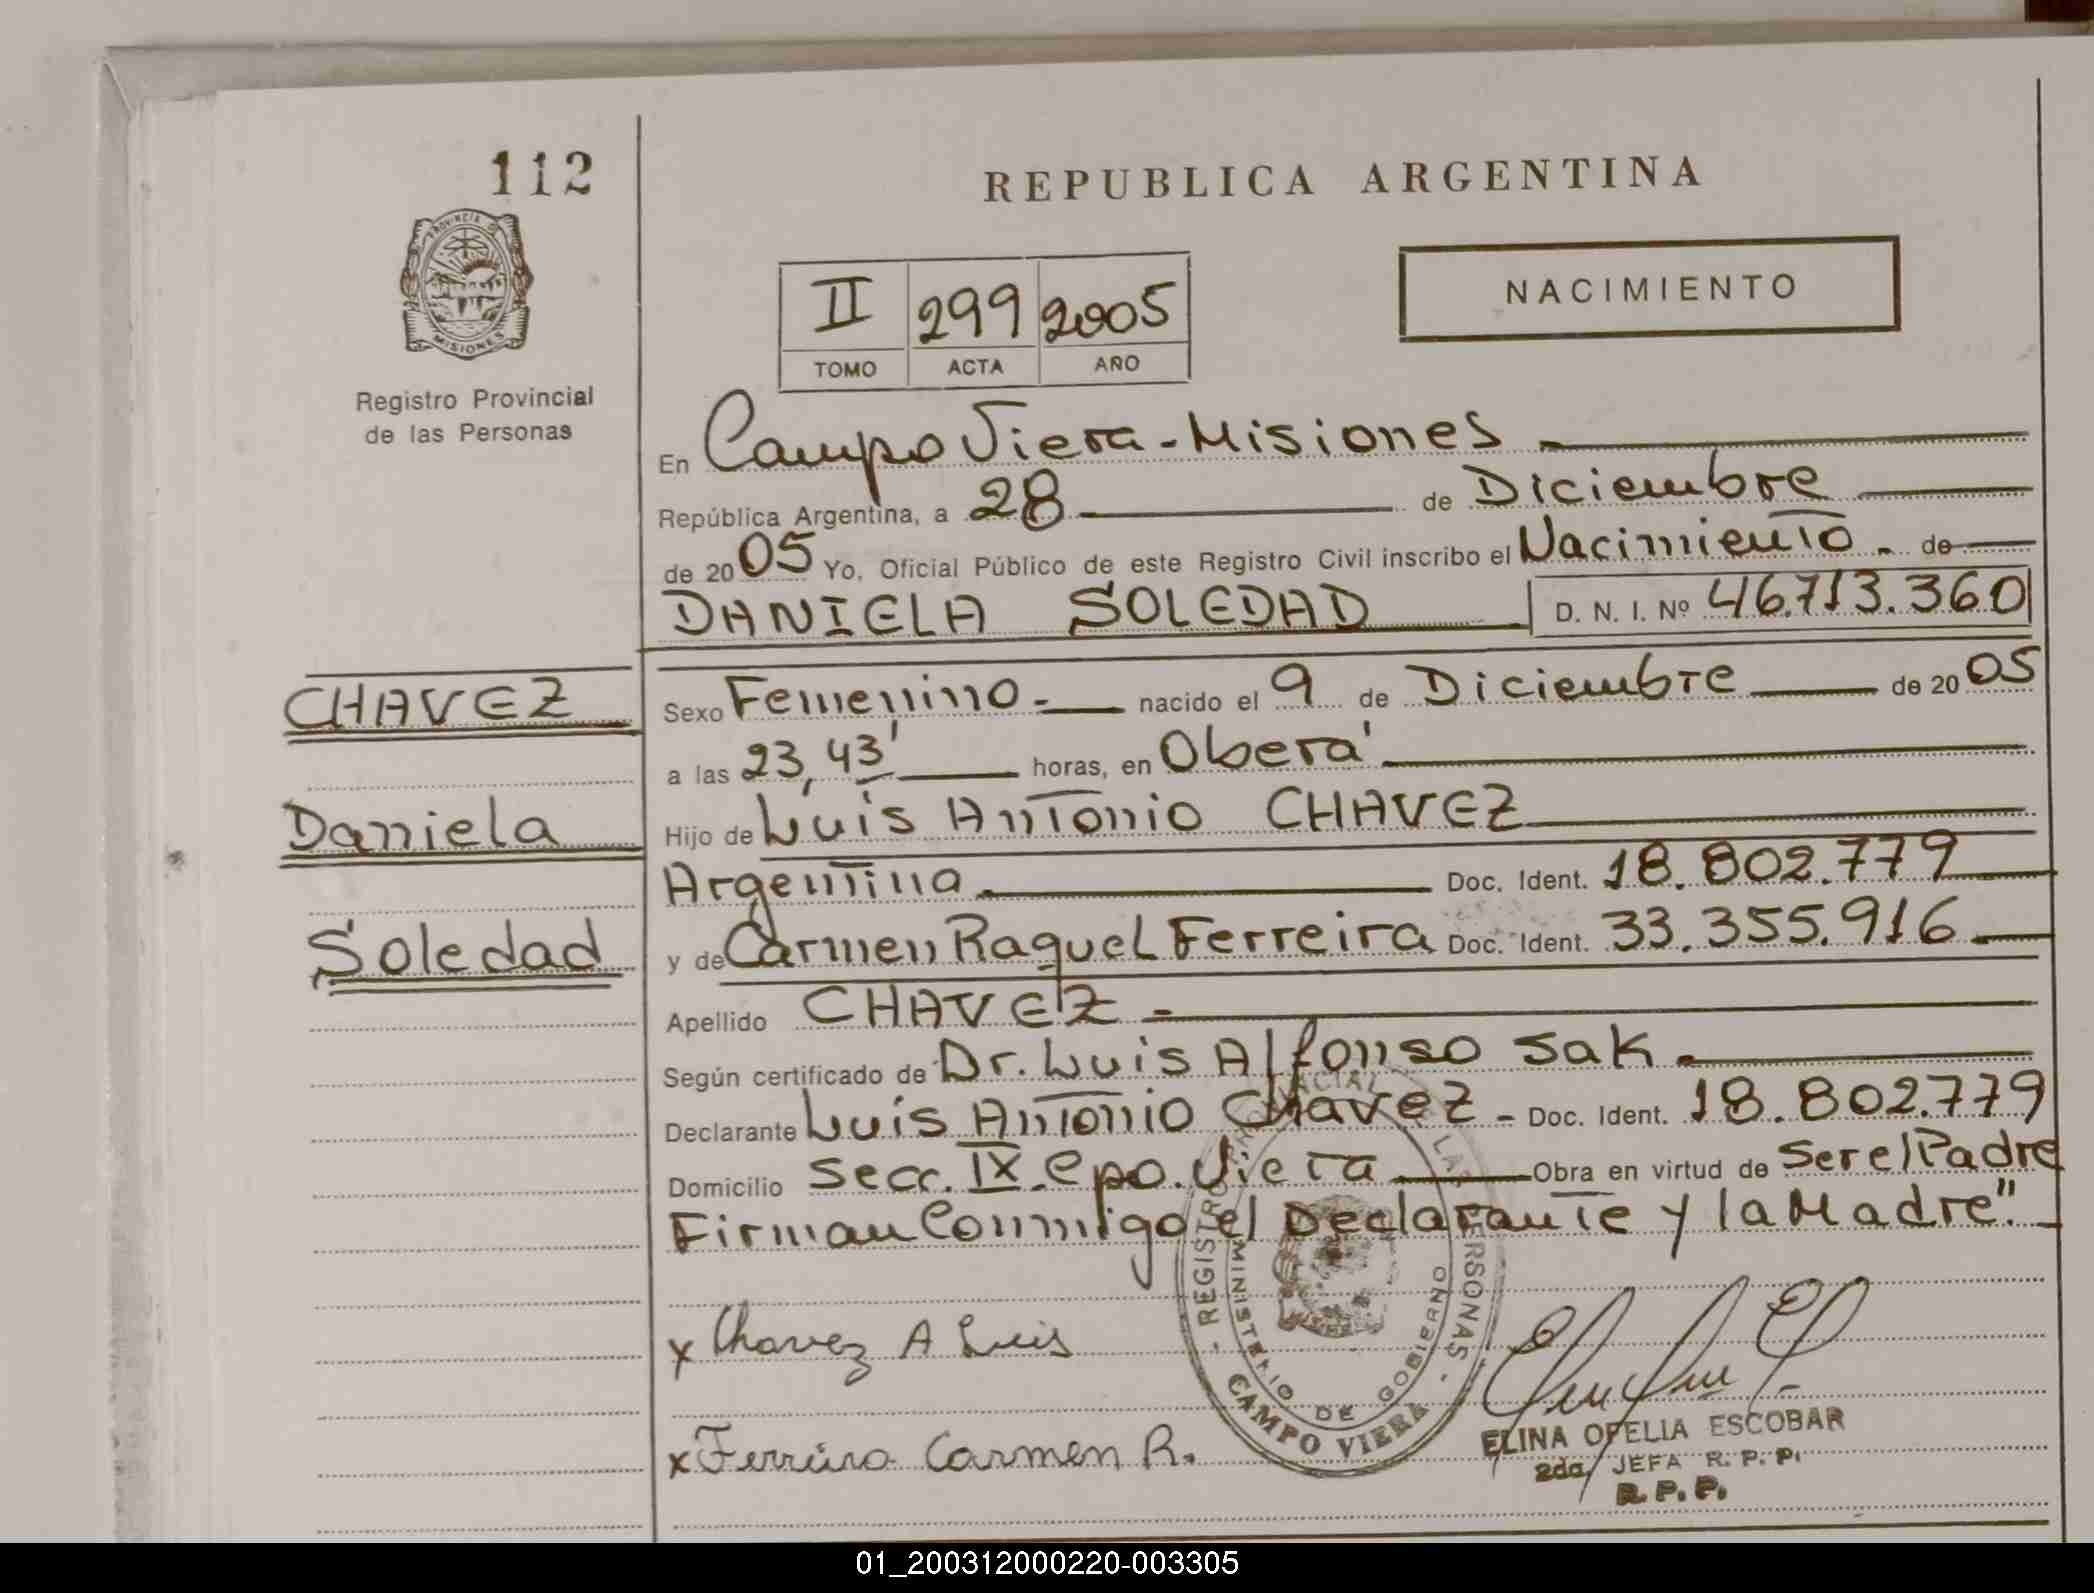 112
PROVINCIA DE
MISIONES
Registro Provincial
de las Personas
REPUBLICA ARGENTINA
II 299 2005
TOMO ACTA AÑO
NACIMIENTO
En Campo Viera - Misiones
República Argentina, a 28 de Diciembre
de 2005 Yo, Oficial Público de este Registro Civil inscribo el Nacimiento. de
DANIELA SOLEDAD D. N. I. Nº 46.713.360
CHAVEZ
Daniela
Soledad
Sexo Femenino nacido el 9 de Diciembre de 2005
a las 23,43' horas, en Oberá
Hijo de Luis Antonio CHAVEZ
Argentina Doc. Ident. 18.802.779
y de Carmen Raquel Ferreira Doc. Ident. 33.355.916
Apellido CHAVEZ
Según certificado de Dr. Luis Alfonso Sak
Declarante Luis Antonio Chavez - Doc. Ident. 18.802.779
Domicilio Secc. IX. Cpo. Viera Obra en virtud de Ser el Padre
Firman Conmigo el Declarante y la Madre".
x Chavez A Luis
x Ferreira Carmen R.
REGISTRO PROVINCIAL DE LAS PERSONAS
MINISTERIO DE GOBIERNO
CAMPO VIERA
ELINA OFELIA ESCOBAR
2da. JEFA R. P. P.
R. P. P.
01_200312000220-003305